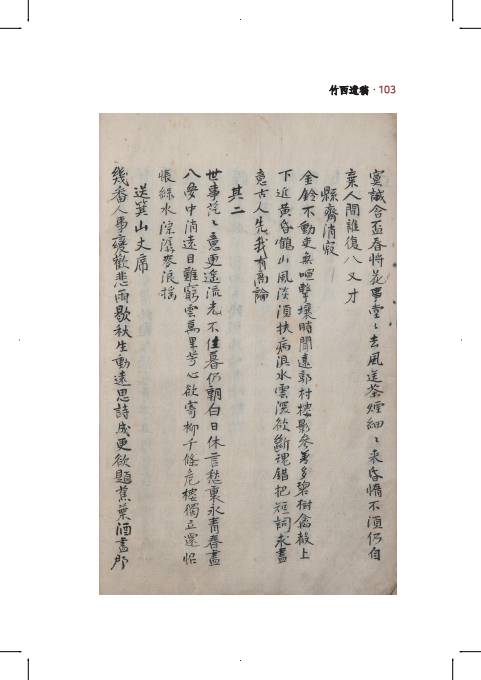 竹西遺稿 · 103
宣誠合盃春將花事堂〻去風送茶煙細〻來昏惰不須仍自
棄人間誰復八叉才
縣齋消寂
金鈴不動吏無喧擊壤時聞遠郭村樓影參差多碧樹禽赦上
下近黃昏鶴山風淡須扶病淇水雲深欲斷魂錯把短詞求盡
意古人先我有高論
其二
世事茫〻意更遙流光不住暮仍朝白日休言愁裏永青春盡
八夢中消遠目難窮雲萬里芳心欲寄柳千條危樓獨立還怊
悵綠水深深麥浪搖
送箕山丈席
幾番人事變歡悲雨歇秋生動遠思詩成更欲題蕉葉酒盡那